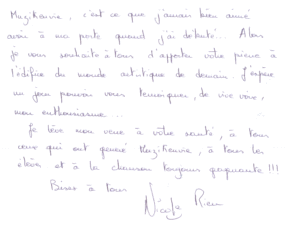 Muzikenvie, c'est ce que j'aurais bien aimé
avoir à ma porte quand j'ai débuté... Alors
je vous souhaite à tous d'apporter votre pierre à
l'édifice du monde artistique de demain. J'espère
un jour pouvoir vous témoigner, de vive voix,
mon enthousiasme...
Je lève mon verre à votre santé, à tous
ceux qui ont généré Muzikenvie, à tous les
élèves et à la chanson toujours gagnante !!!
Bises à tous
Nicole Rieu